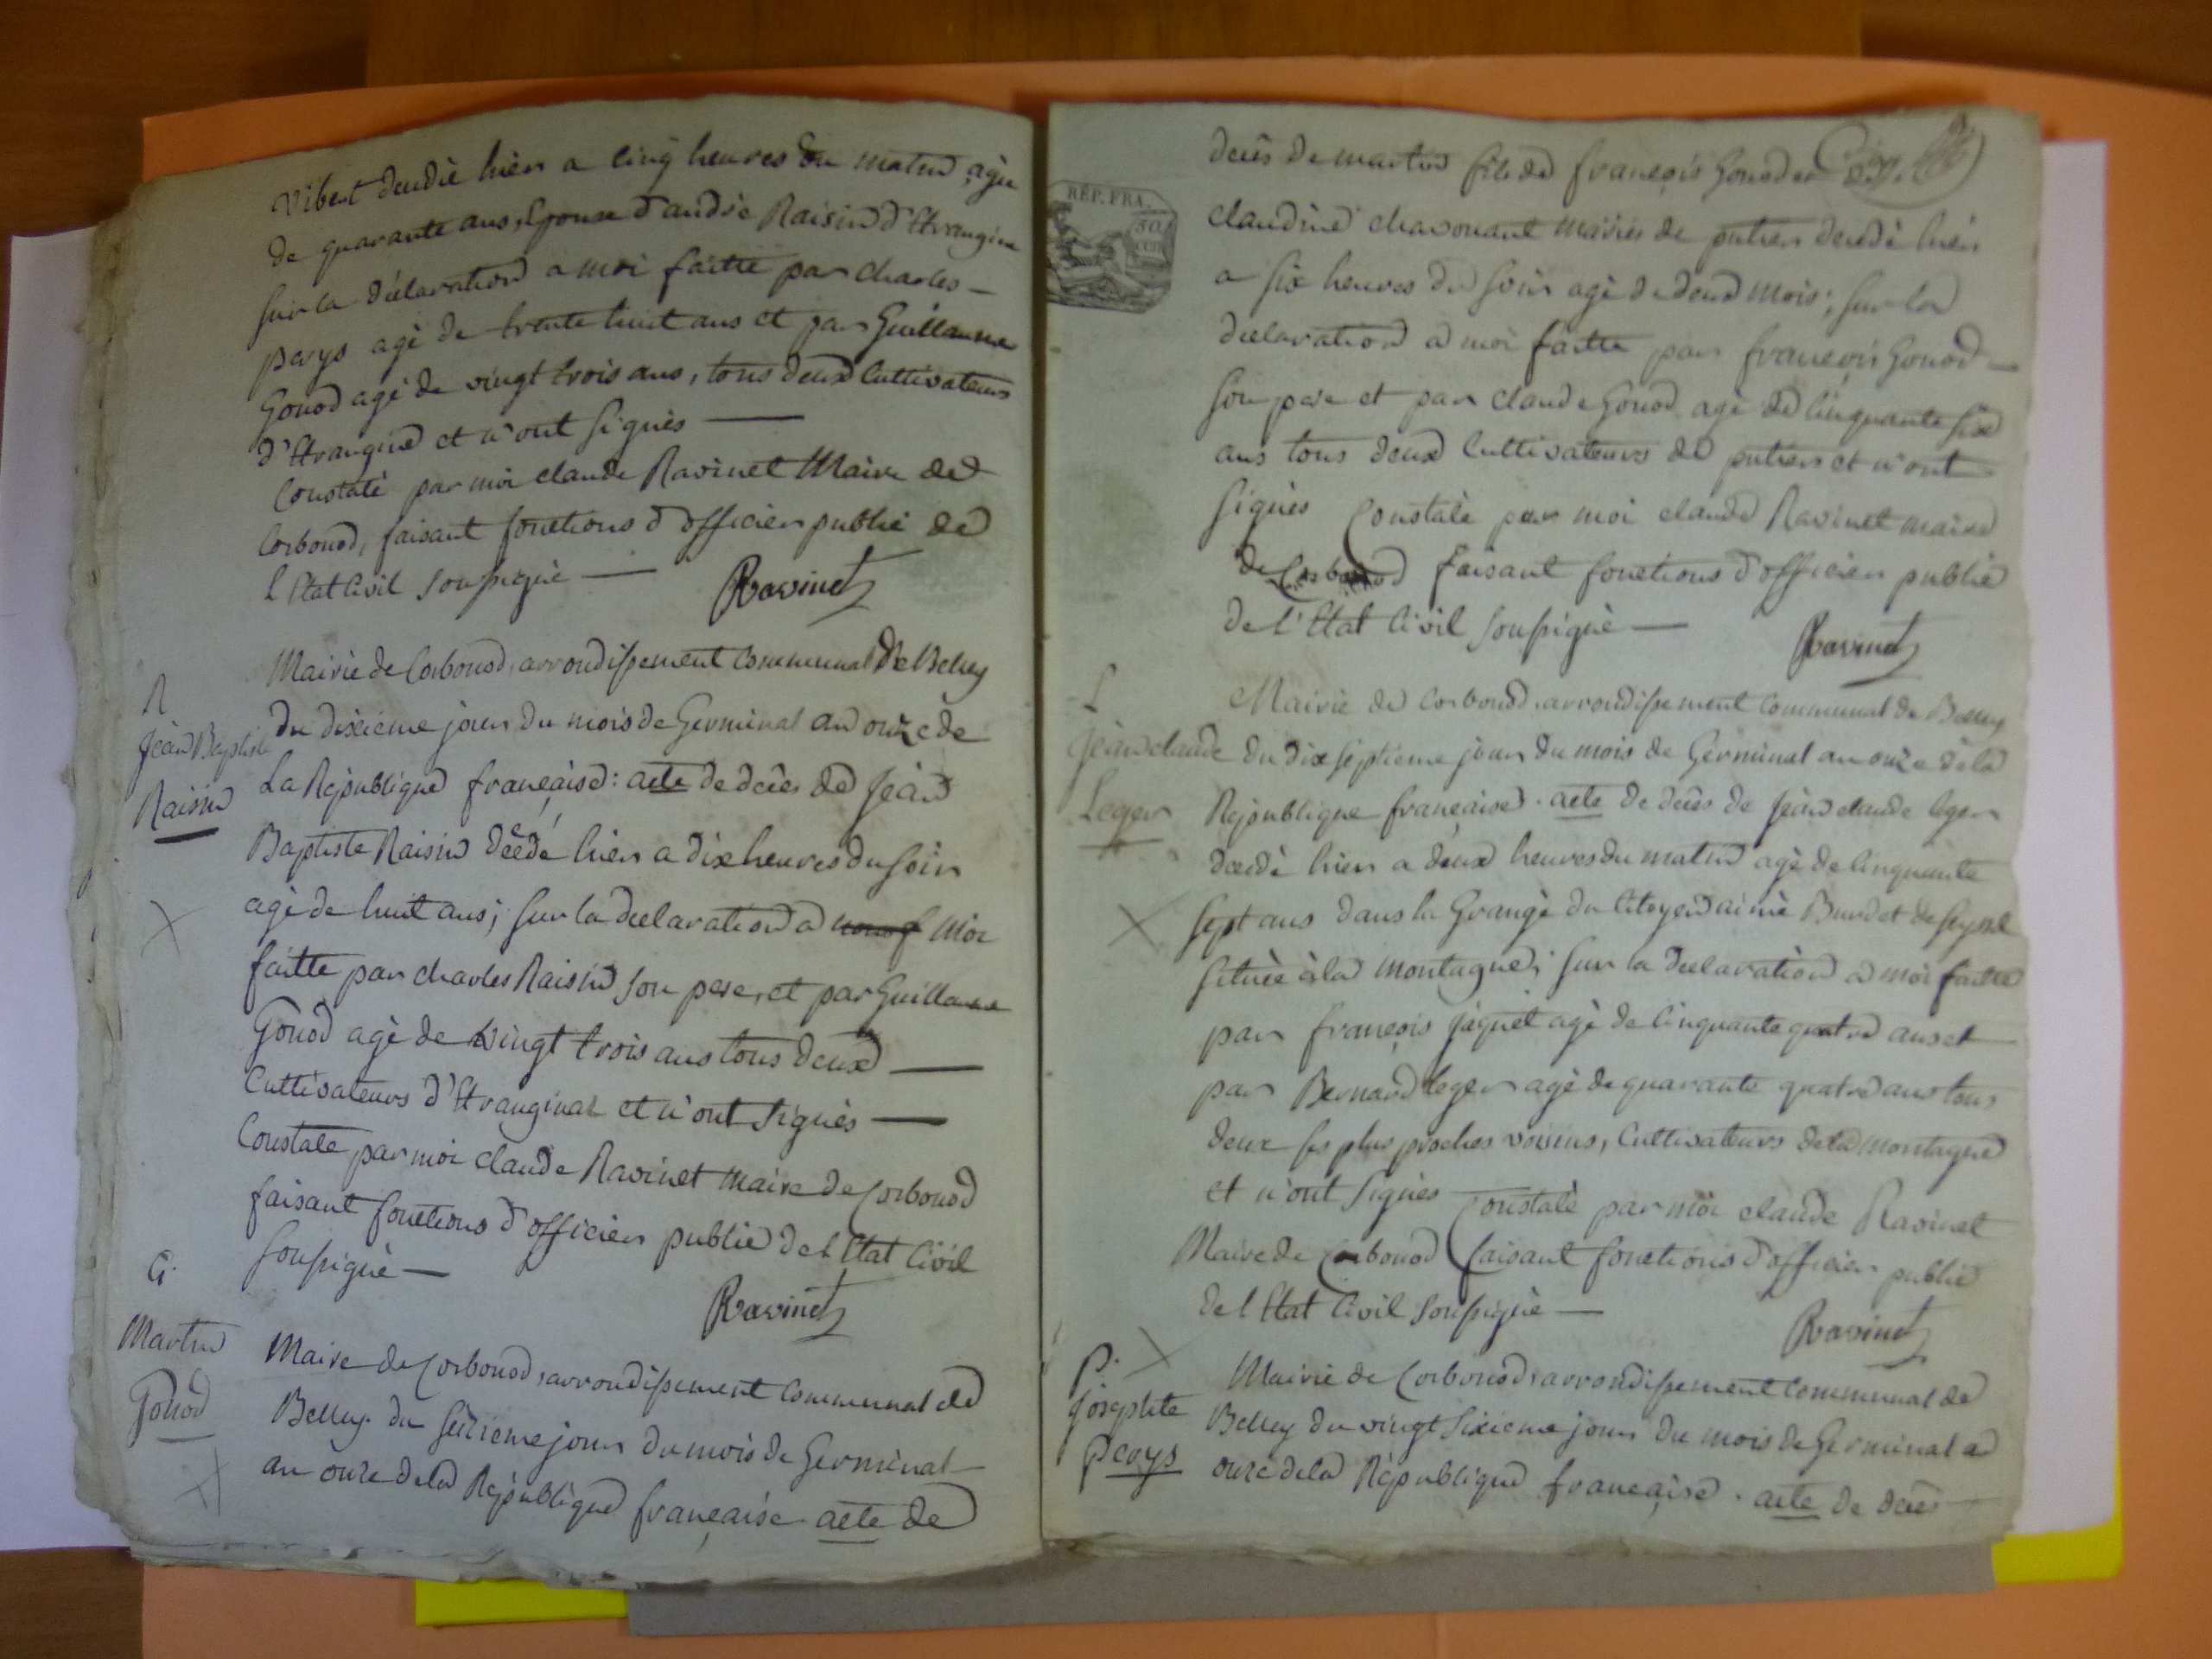 Vibert decedé hier a cinq heures du matin agée
de quarante ans, Epouse d'andré Raisin d'Etrangina
sur la déclaration a moi faitte par charles
perys agé de trente huit ans et par Guillaume
Gonod agé de vingt trois ans, tous deux Cultivateurs
d'Etrangina et n'ont signés
Constaté par moi claude Ravinet Maire de
Corbonod, faisant fonctions d'officier public de
l'Etat Civil soussigné
Ravinet
Mairie de Corbonod, arrondissement Communal de Belley
R
Jean Baptiste
Raisin
du dixieme jour du mois de Germinal an onze de
La République française: acte de deces de Jean
Baptiste Raisin décédé hier a dix heures du soir
agé de huit ans; sur la declaration a moi
faitte par charles Raisin son pere, et par Guillaume
Gonod agé de vingt trois ans tous deux
Cultivateurs d'Etranginat et n'ont signés
Constaté par moi claude Ravinet Maire de Corbonod
faisant fonctions d'officier public de l'Etat Civil
soussigné
Ravinet
G.
Martin
Gonod
Maire de Corbonod, arrondissement Communal de
Belley du seizieme jour du mois de Germinal
an onze de la République française acte de
REP. FRA.
50
deces de martin fils de françois Gonod et
claudine chavonant mariés de putier decedé hier
a six heures du soir agé de deux mois; sur la
declaration a moi faitte par françois Gonod
son pere et par claude Gonod agé de cinquante six
ans tous deux Cultivateurs de putier et n'ont
signés Constaté par moi claude Ravinet maire
de Corbonod faisant fonctions d'officier public
de l'Etat Civil soussigné
Ravinet
Mairie de Corbonod, arrondissement Communal de Belley
L
Jean claude
Leger
du dix septieme jour du mois de Germinal an onze de la
République française. acte de deces de Jean claude leger
decedé hier a deux heures du matin agé de cinquante
sept ans dans la Grange du Citoyen aimé Burdet de seyssel
située à la montagne; sur la declaration a moi faitte
par françois jaquet agé de cinquante quatre ans et
par Bernard leger agé de quarante quatre ans tous
deux ses plus proches voisins, Cultivateurs de la montagne
et n'ont signés Constaté par moi claude Ravinet
Maire de Corbonod faisant fonctions d'officier public
de l'Etat Civil soussigné
Ravinet
P.
Josephte
Perys
Mairie de Corbonod, arrondissement Communal de
Belley du vingt sixieme jour du mois de Germinal an
onze de la République française. acte de deces